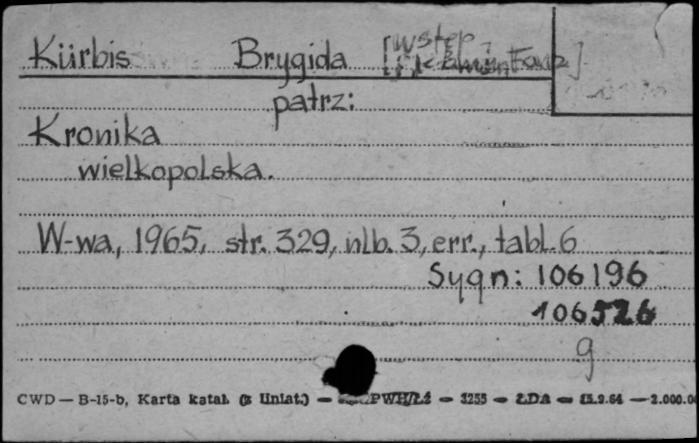 Kürbis Brygida [wstęp i komentarz]
patrz:
Kronika
wielkopolska.
W-wa, 1965, str. 329, nlb. 3, err., tabl. 6
Sygn: 106196
106526
g
CWD — B-15-b, Karta katal. (z liniat.) — PWH/Łź — 3255 — ŁDA — 15.9.64 — 2.000.0